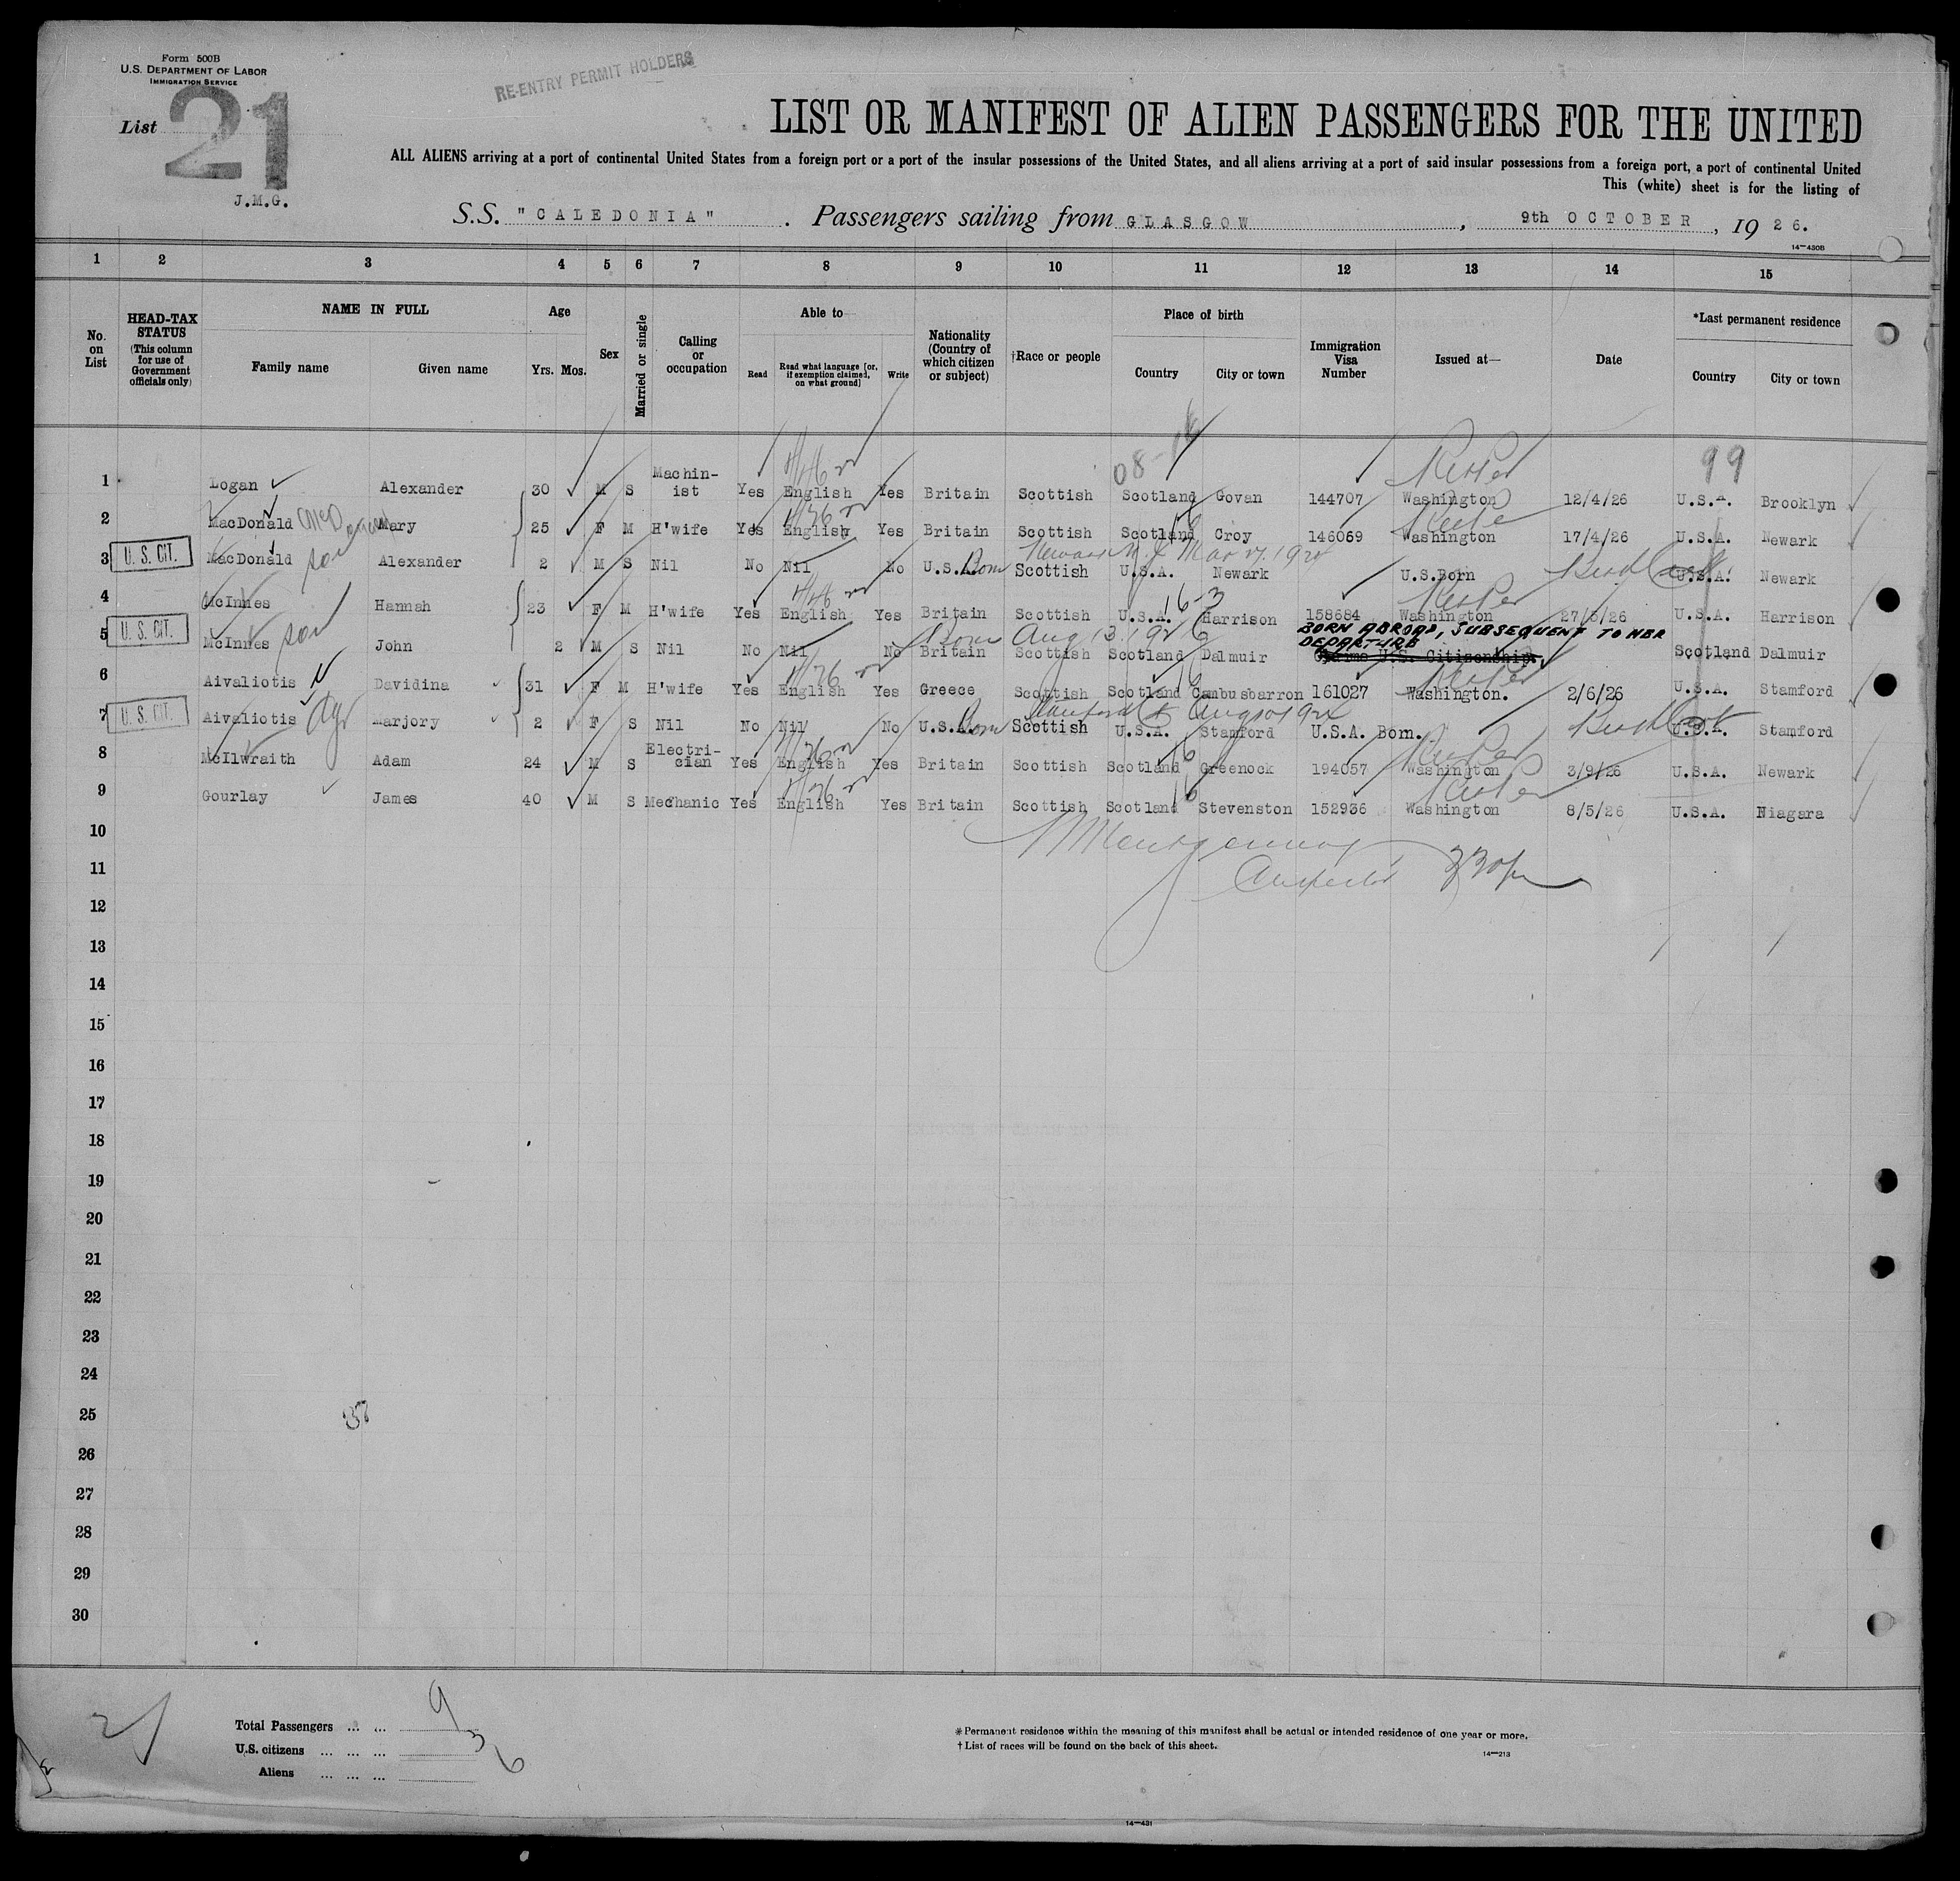 Form 500B
U.S. DEPARTMENT OF LABOR
IMMIGRATION SERVICE
RE-ENTRY PERMIT HOLDERS
List 21
J.M.G.
LIST OR MANIFEST OF ALIEN PASSENGERS FOR THE UNITED
ALL ALIENS arriving at a port of continental United States from a foreign port or a port of the insular possessions of the United States, and all aliens arriving at a port of said insular possessions from a foreign port, a port of continental United
This (white) sheet is for the listing of
S.S. "CALEDONIA". Passengers sailing from GLASGOW, 9th OCTOBER, 1926.
14—430B
1 2 3 4 5 6 7 8 9 10 11 12 13 14 15
No. on List
HEAD-TAX STATUS (This column for use of Government officials only)
NAME IN FULL Family name Given name
Age Yrs. Mos.
Sex
Married or single
Calling or occupation
Able to— Read Read what language [or, if exemption claimed, on what ground] Write
Nationality (Country of which citizen or subject)
†Race or people
Place of birth Country City or town
Immigration Visa Number
Issued at—
Date
*Last permanent residence Country City or town
08 99
1 Logan Alexander 30 M S Machinist Yes English Yes Britain Scottish Scotland Govan 144707 Washington 12/4/26 U.S.A. Brooklyn
2 MacDonald Mary 25 F M H'wife Yes English Yes Britain Scottish Scotland Croy 146069 Washington 17/4/26 U.S.A. Newark
3 U. S. CIT. MacDonald son Alexander 2 M S Nil No Nil No U.S. Born Scottish U.S.A. Newark U.S.Born U.S.A. Newark
4 McInnes Hannah 23 F M H'wife Yes English Yes Britain Scottish U.S.A. Harrison 158684 Washington 27/5/26 U.S.A. Harrison
Born Aug 13 1926 BORN ABROAD, SUBSEQUENT TO HER DEPARTURE
5 U. S. CIT. McInnes son John 2 M S Nil No Nil No Britain Scottish Scotland Dalmuir Claims U.S. Citizenship. Scotland Dalmuir
6 Aivaliotis Davidina 31 F M H'wife Yes English Yes Greece Scottish Scotland Cambusbarron 161027 Washington. 2/6/26 U.S.A. Stamford
7 U. S. CIT. Aivaliotis Marjory 2 F S Nil No Nil No U.S. Born Scottish U.S.A. Stamford U.S.A. Born. U.S.A. Stamford
8 McIlwraith Adam 24 M S Electrician Yes English Yes Britain Scottish Scotland Greenock 194057 Washington 3/9/26 U.S.A. Newark
9 Gourlay James 40 M S Mechanic Yes English Yes Britain Scottish Scotland Stevenston 152936 Washington 8/5/26 U.S.A. Niagara
10
11
12
13
14
15
16
17
18
19
20
21
22
23
24
25
26
27
28
29
30
21
Total Passengers ... ... 9
U.S. citizens ... ... ... 3
Aliens ... ... ... 6
*Permanent residence within the meaning of this manifest shall be actual or intended residence of one year or more.
†List of races will be found on the back of this sheet.
14—213
14—431